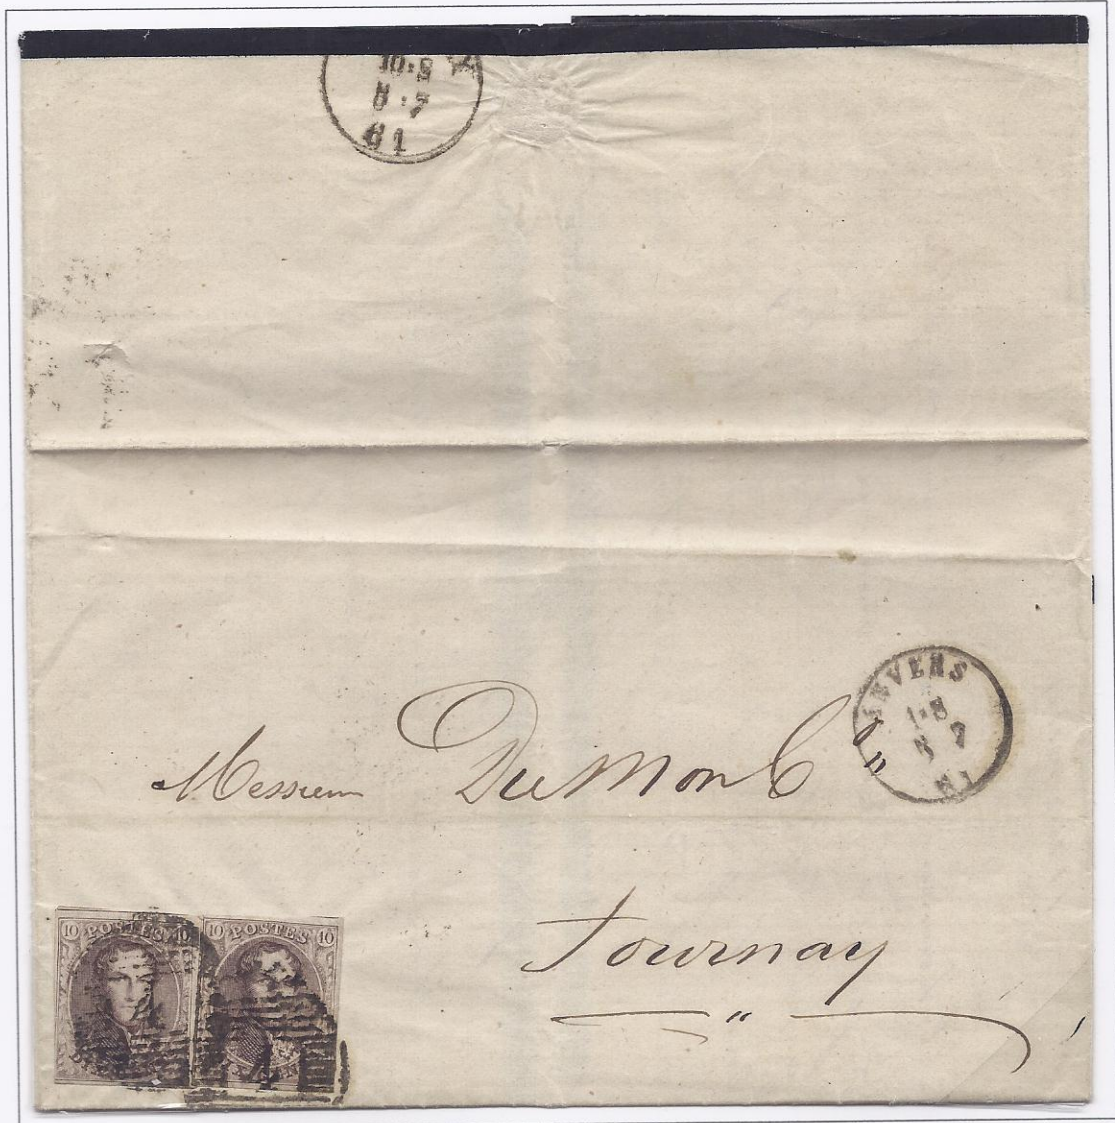 10·8
8·7
61
ANVERS
1·8
8 7
61
Messieurs Du Mon
Tournay
"
10 POSTES 10
10 POSTES 10
4